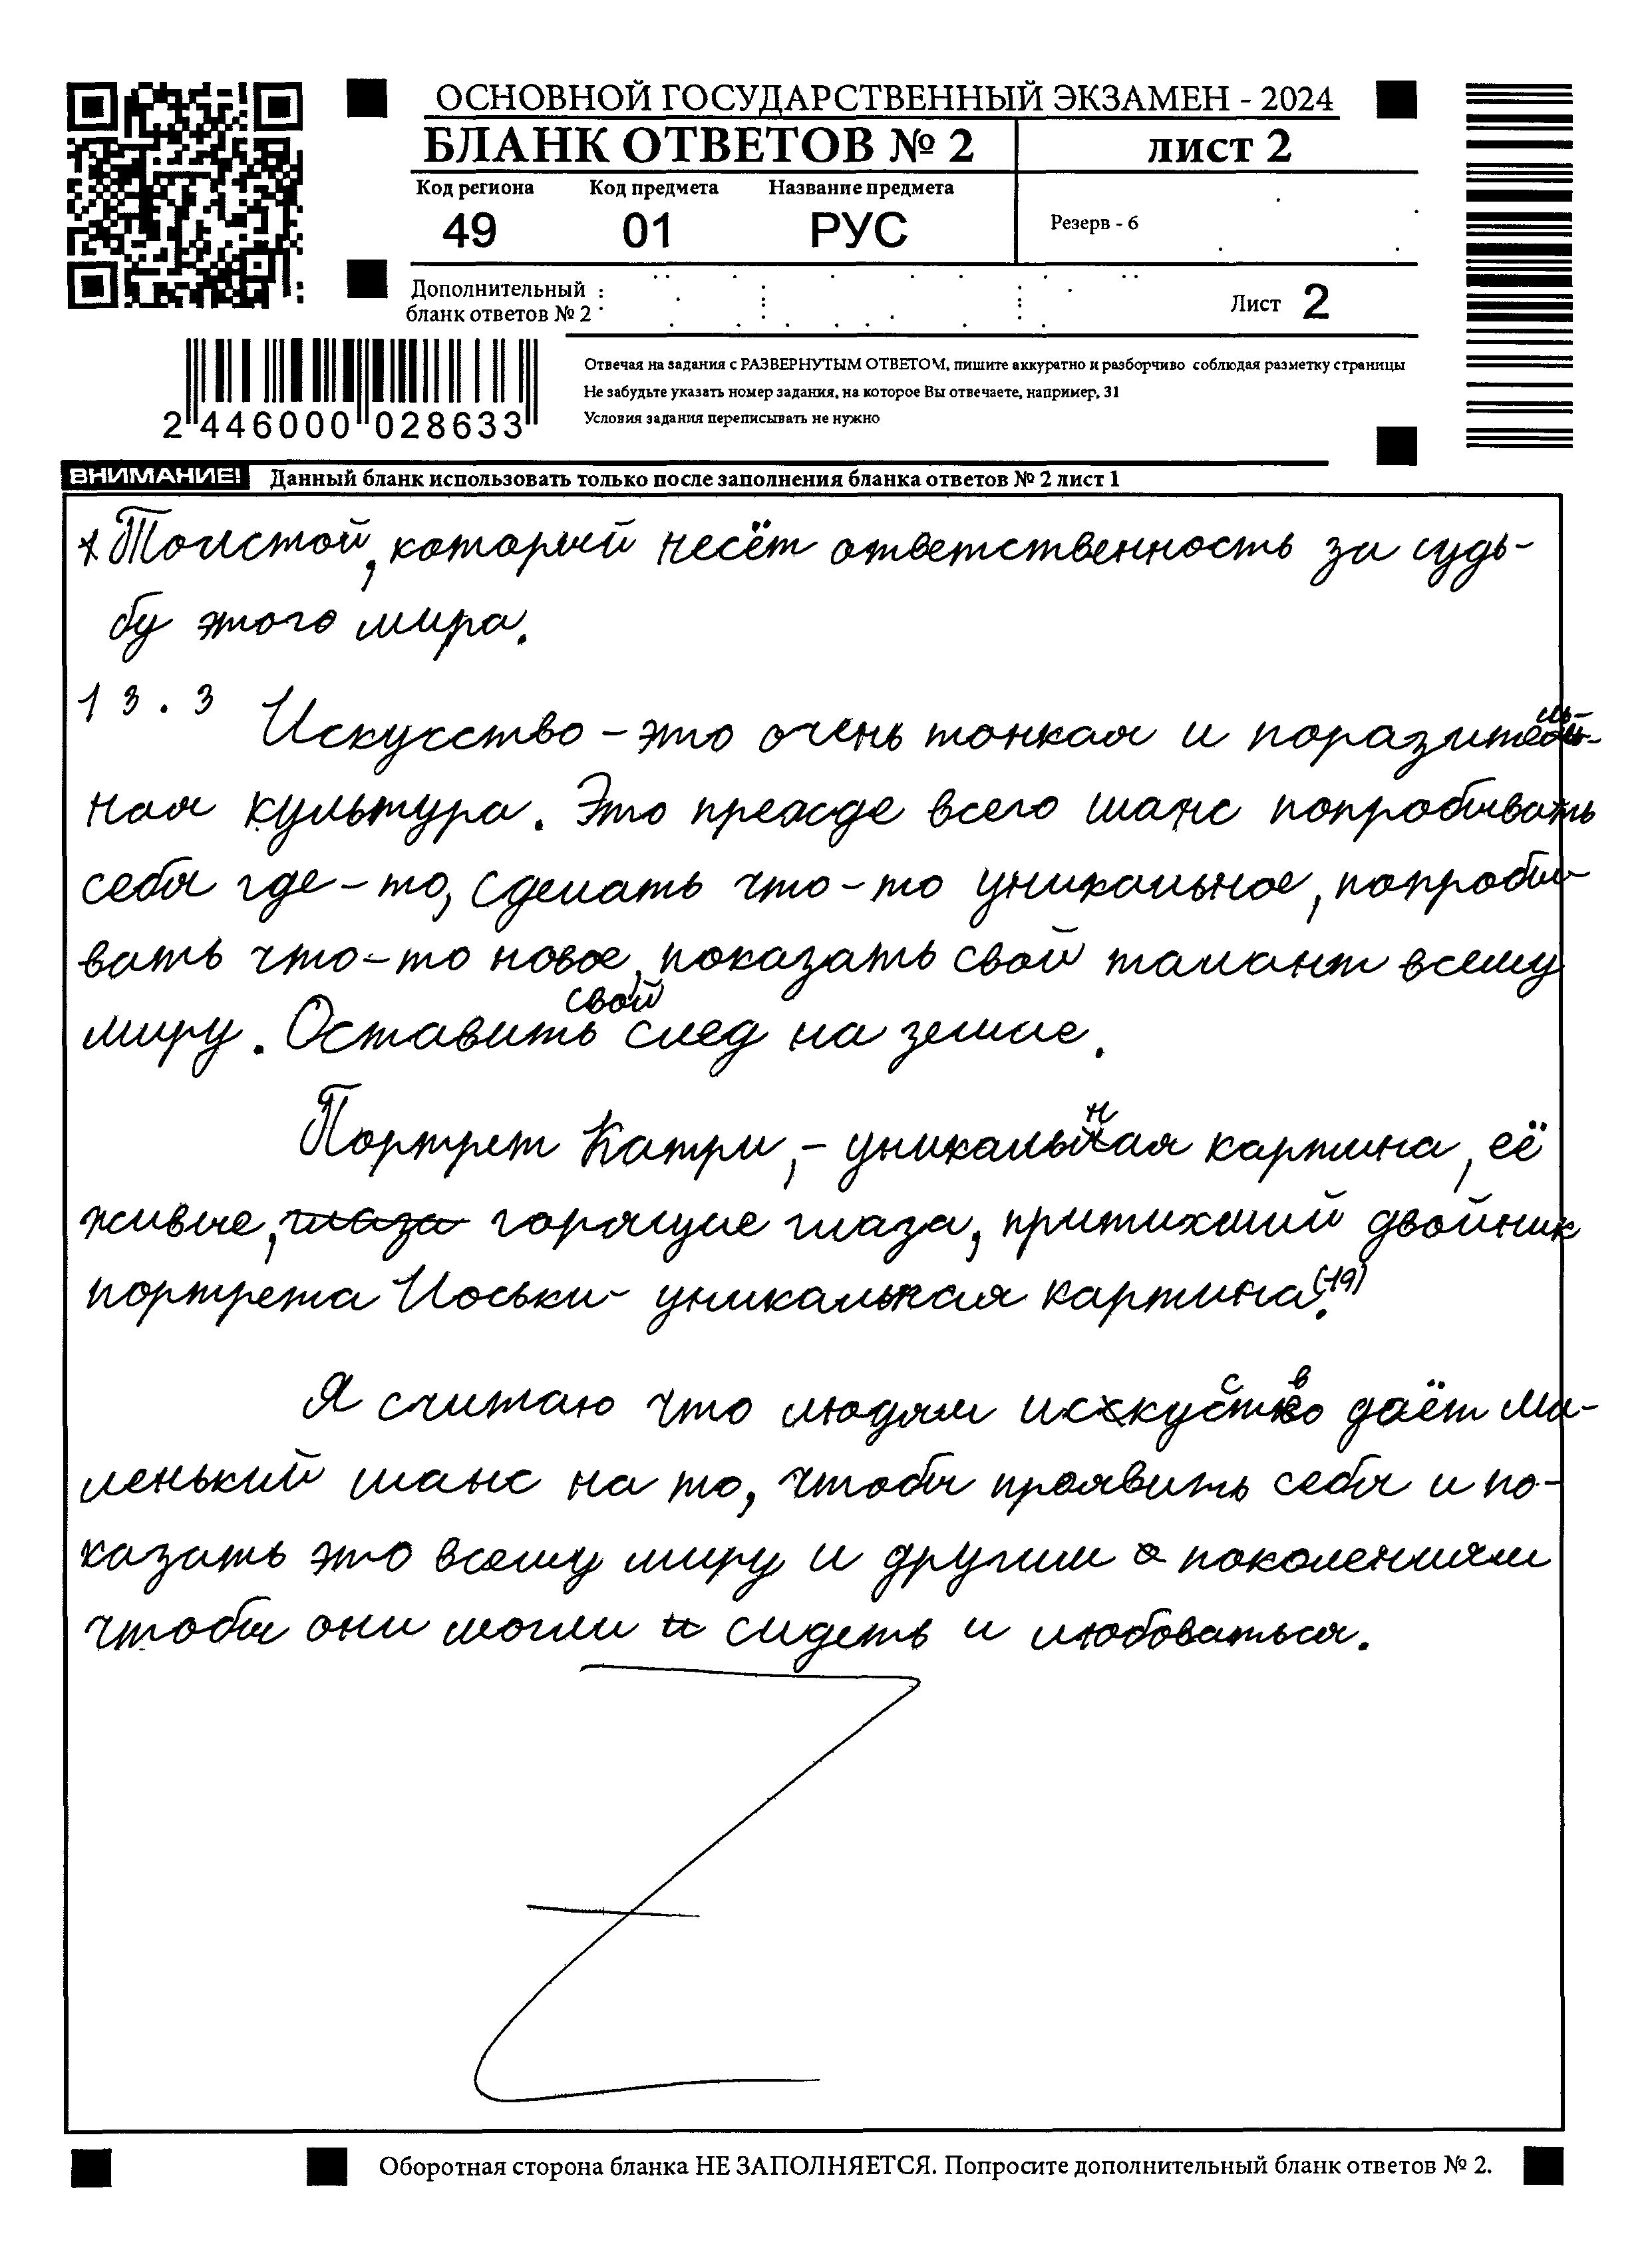 ОСНОВНОЙ ГОСУДАРСТВЕННЫЙ ЭКЗАМЕН - 2024
БЛАНК ОТВЕТОВ № 2
лист 2
Код региона
Код предмета
Название предмета
49
01
РУС
Резерв - 6
Дополнительный
бланк ответов № 2
Лист 2
Отвечая на задания с РАЗВЕРНУТЫМ ОТВЕТОМ, пишите аккуратно и разборчиво соблюдая разметку страницы
Не забудьте указать номер задания, на которое Вы отвечаете, например, 31
Условия задания переписывать не нужно
2 446000 028633
ВНИМАНИЕ! Данный бланк использовать только после заполнения бланка ответов № 2 лист 1
Толстой, который несёт ответственность за судь-
бу этого мира.
13.3 Искусство - это очень тонкая и поразитель-
ная культура. Это прежде всего шанс попробывать
себя где-то, сделать что-то уникальное, попробы-
вать что-то новое, показать свой талант всему
миру. Оставить свой след на земле.
Портрет Катри, - уникальная картина, её
живые, глаза горящие глаза, притихший двойник
портрета Иоськи - уникальная картина. (19)
Я считаю что людям искуство даёт ма-
ленький шанс на то, чтобы проявить себя и по-
казать это всему миру и другим поколениям
чтобы они могли сидеть и любоваться.
Оборотная сторона бланка НЕ ЗАПОЛНЯЕТСЯ. Попросите дополнительный бланк ответов № 2.